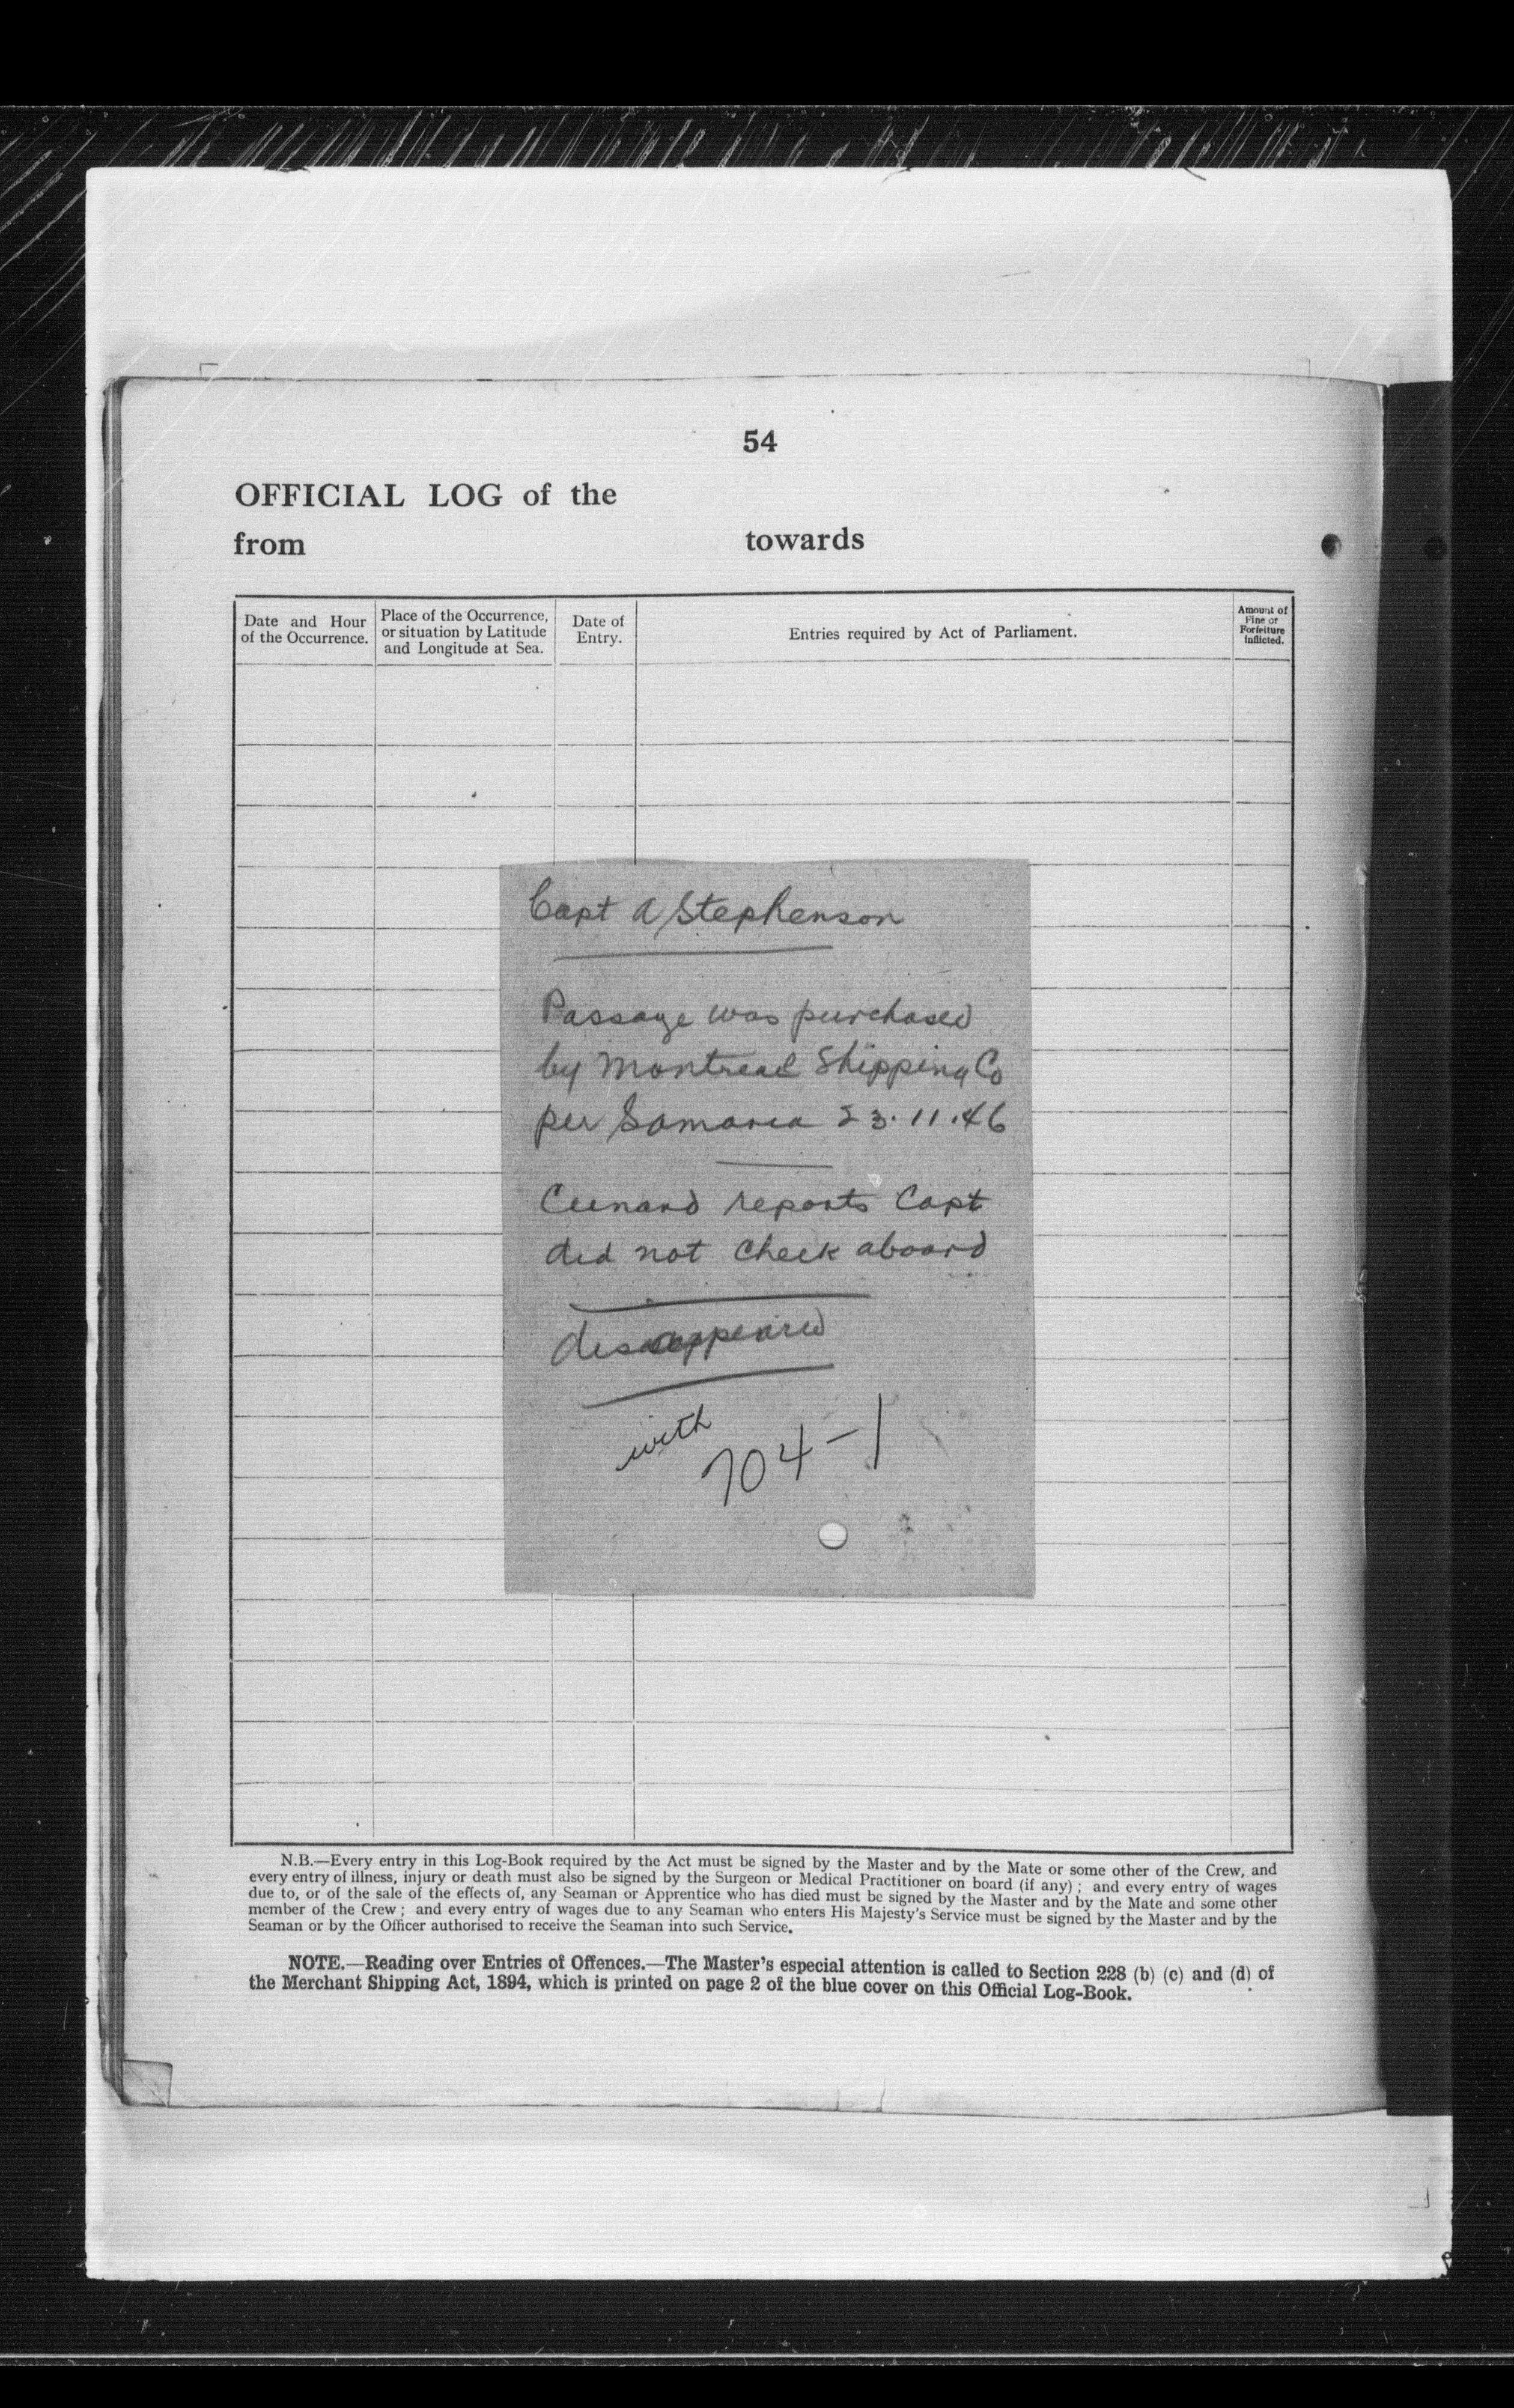 54
OFFICIAL LOG of the
from towards
Date and Hour of the Occurrence.
Place of the Occurrence, or situation by Latitude and Longitude at Sea.
Date of Entry.
Entries required by Act of Parliament.
Amount of Fine or Forfeiture inflicted.
Capt A Stephenson
Passage was purchased
by Montreal Shipping Co
per Samaria 23.11.46
Cunard reports Capt
did not check aboard
disappeared
with
704-1
N.B.—Every entry in this Log-Book required by the Act must be signed by the Master and by the Mate or some other of the Crew, and
every entry of illness, injury or death must also be signed by the Surgeon or Medical Practitioner on board (if any) ; and every entry of wages
due to, or of the sale of the effects of, any Seaman or Apprentice who has died must be signed by the Master and by the Mate and some other
member of the Crew ; and every entry of wages due to any Seaman who enters His Majesty's Service must be signed by the Master and by the
Seaman or by the Officer authorised to receive the Seaman into such Service.
NOTE.—Reading over Entries of Offences.—The Master's especial attention is called to Section 228 (b) (c) and (d) of
the Merchant Shipping Act, 1894, which is printed on page 2 of the blue cover on this Official Log-Book.